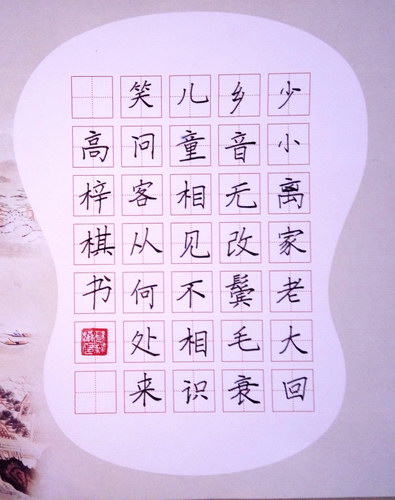 少小离家老大回
乡音无改鬓毛衰
儿童相见不相识
笑问客从何处来
高梓棋书